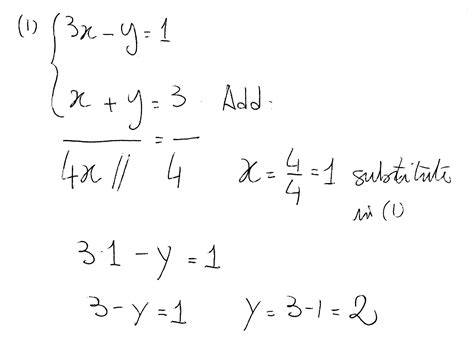 (1) { 3x - y = 1
x + y = 3 Add.
4x // = 4 x = 4/4 = 1 substitute
in (1)
3·1 - y = 1
3 - y = 1 y = 3-1 = 2